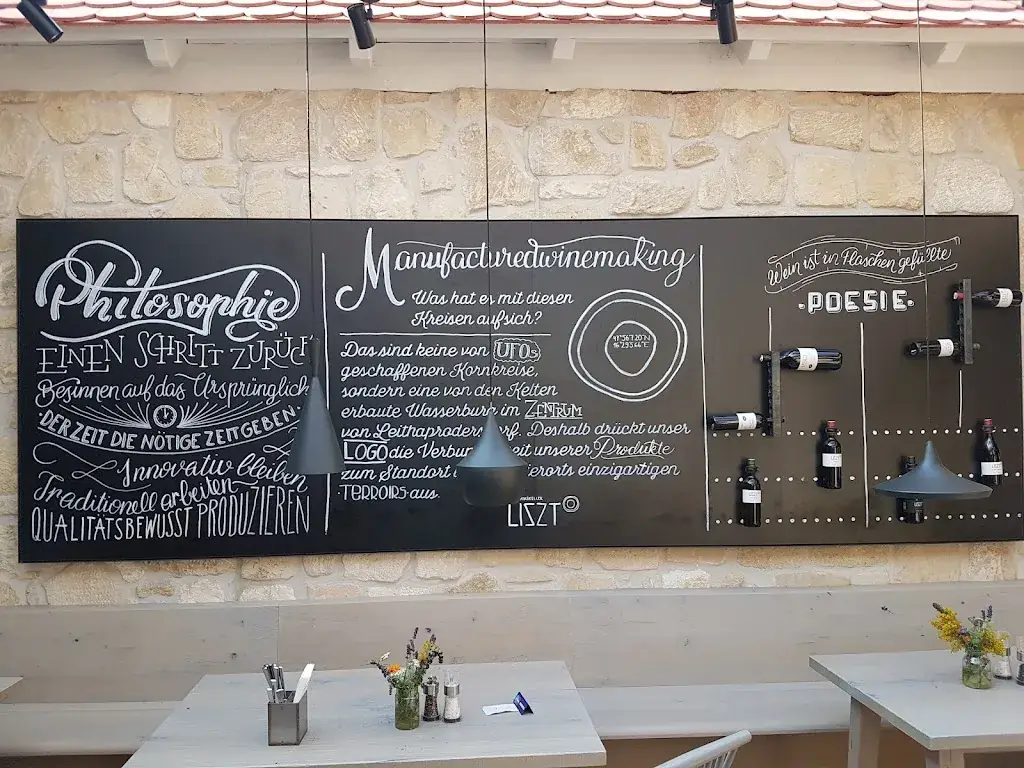 Philosophie
EINEN SCHRITT ZURÜCK
Besinnen auf das Ursprüngliche
DER ZEIT DIE NÖTIGE ZEIT GEBEN
Innovativ bleiben
Traditionell arbeiten
QUALITÄTSBEWUSST PRODUZIEREN
Manufacturedwinemaking
Was hat es mit diesen
Kreisen aufsich?
Das sind keine von UFOs
geschaffenen Kornkreise,
sondern eine von den Kelten
erbaute Wasserburg im ZENTRUM
von Leithaprodersdorf. Deshalb drückt unser
LOGO die Verbundenheit unserer Produkte
zum Standort
hierorts einzigartigen
TERROIRS aus.
LISZT
Wein ist in Flaschen gefüllte
POESIE